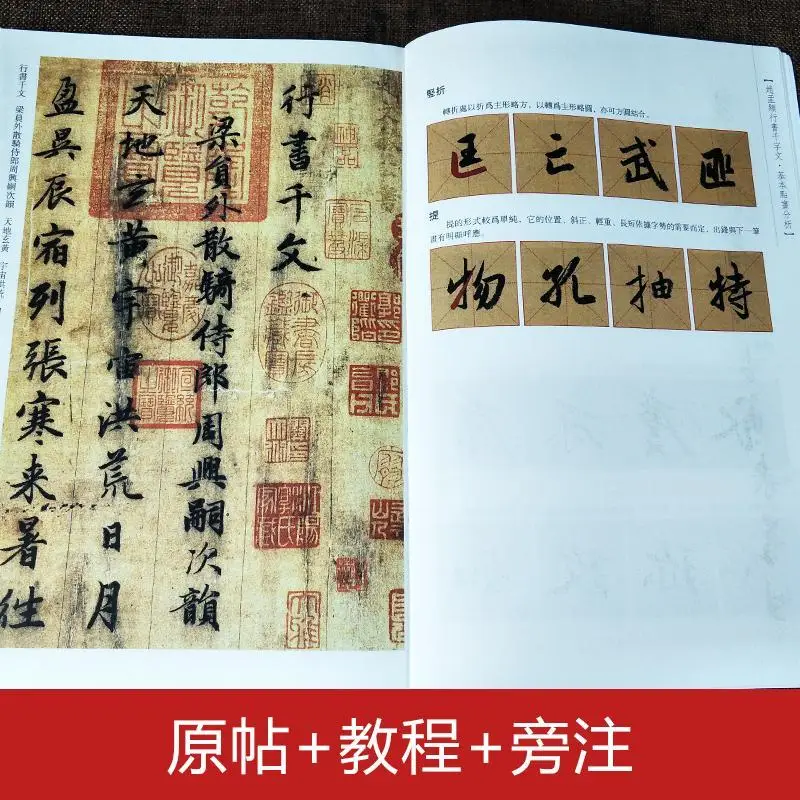 行書千文
梁員外散騎侍郎周興嗣次韻
天地玄黃宇宙洪荒日月
盈昃辰宿列張寒来暑往
行書千文 梁員外散騎侍郎周興嗣次韻 天地玄黃 宇宙洪荒
竪折
轉折處以折爲主形略方，以轉爲主形略圓，亦可方圓結合。
匡 亡 武 匪
提
提的形式較爲單純，它的位置、斜正、輕重、長短依據字勢的需要而定，出鋒與下一筆
畫有明顯呼應。
物 孔 抽 特
【趙孟頫行書千字文·基本點畫分析】
原帖+教程+旁注